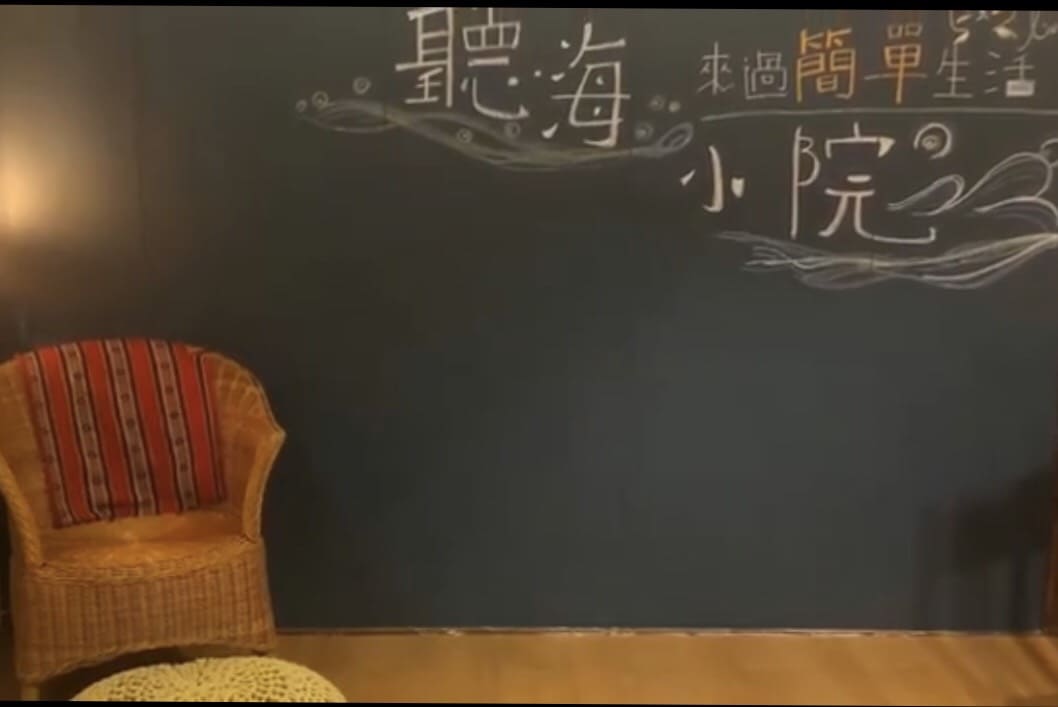 聽海
來過簡單生活
小院